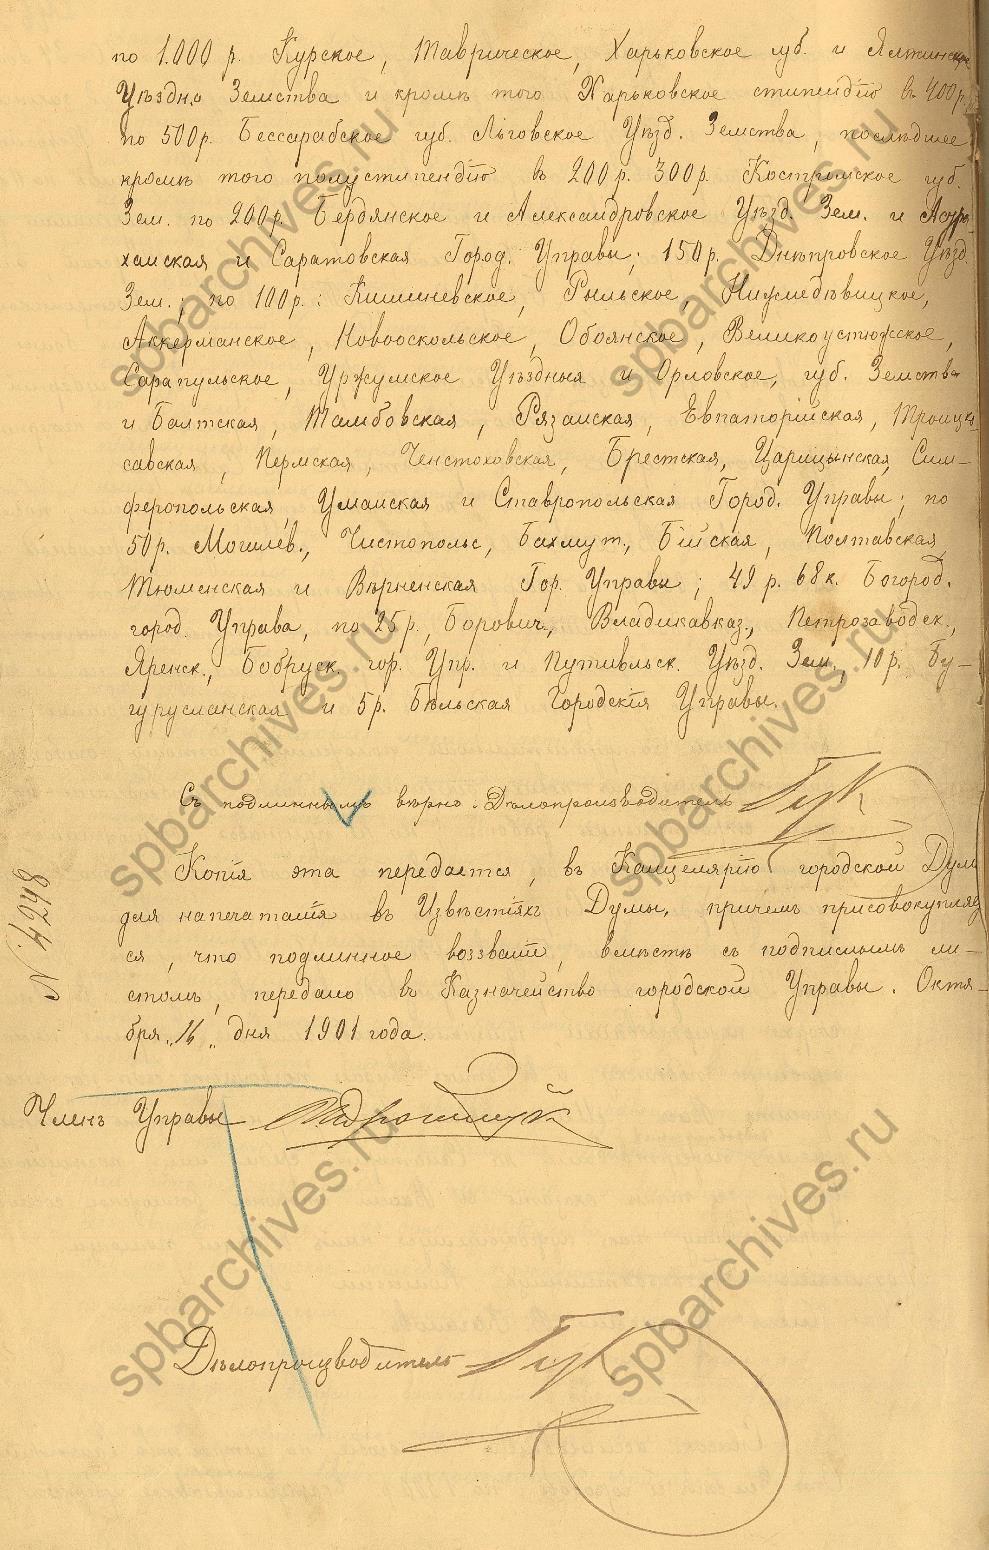 по 1.000 р. Курское, Таврическое, Харьковское губ. и Ялтинское
Уѣздн. Земства и кромѣ того Харьковское стипендію въ 400 р.
по 500 р. Бессарабское губ. Льговское Уѣзд. Земства, послѣднее
кромѣ того полустипендію въ 200 р. 300 р. Костромское губ.
Зем. по 200 р. Бердянское и Александровское Уѣзд. Зем. и Астра-
ханская и Саратовская Город. Управы; 150 р. Днѣпровское Уѣзд.
Зем.; по 100 р.: Кишиневское, Рыльское, Нижнедѣвицкое,
Аккерманское, Новооскольское, Обоянское, Великоустюжское,
Сарапульское, Уржумское Уѣздныя и Орловское, губ. Земства
и Балтская, Тамбовская, Рязанская, Евпаторійская, Троицко-
савская, Пермская, Ченстоховская, Брестская, Царицынская, Сим-
феропольская, Уманская и Ставропольская Город. Управы; по
50 р. Могилев., Чистопольс, Бахмут., Бійская, Полтавская,
Тюменская и Вѣрненская Гор. Управы; 49 р. 68 к. Богород.
город. Управа, по 25 р., Борович., Владикавказ., Петрозаводск.,
Яренск., Бобруск. гор. Упр. и Путивльск. Уѣзд. Зем., 10 р. Бу-
гурусланская и 5 р. Бѣльская Городскія Управы.
Съ подлиннымъ вѣрно: Дѣлопроизводитель
Копія эта передается, въ Канцелярію городской Думы
для напечатанія въ Извѣстіяхъ Думы, причемъ присовокупляет-
ся, что подлинное воззваніе, вмѣстѣ съ подписнымъ ли-
стомъ, передано въ Казначейство городской Управы. Октя-
бря „16„ дня 1901 года.
N 4248
Членъ Управы
Дѣлопроизводитель
spbarchives.ru
spbarchives.ru
spbarchives.ru
spbarchives.ru
spbarchives.ru
spbarchives.ru